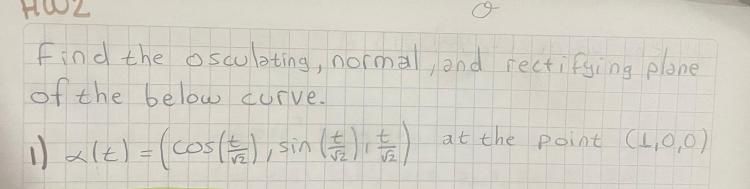 HW2
Find the osculating, normal, and rectifying plane
of the below curve.
1) α(t) = (cos(t/√2), sin(t/√2), t/√2) at the point (1,0,0)